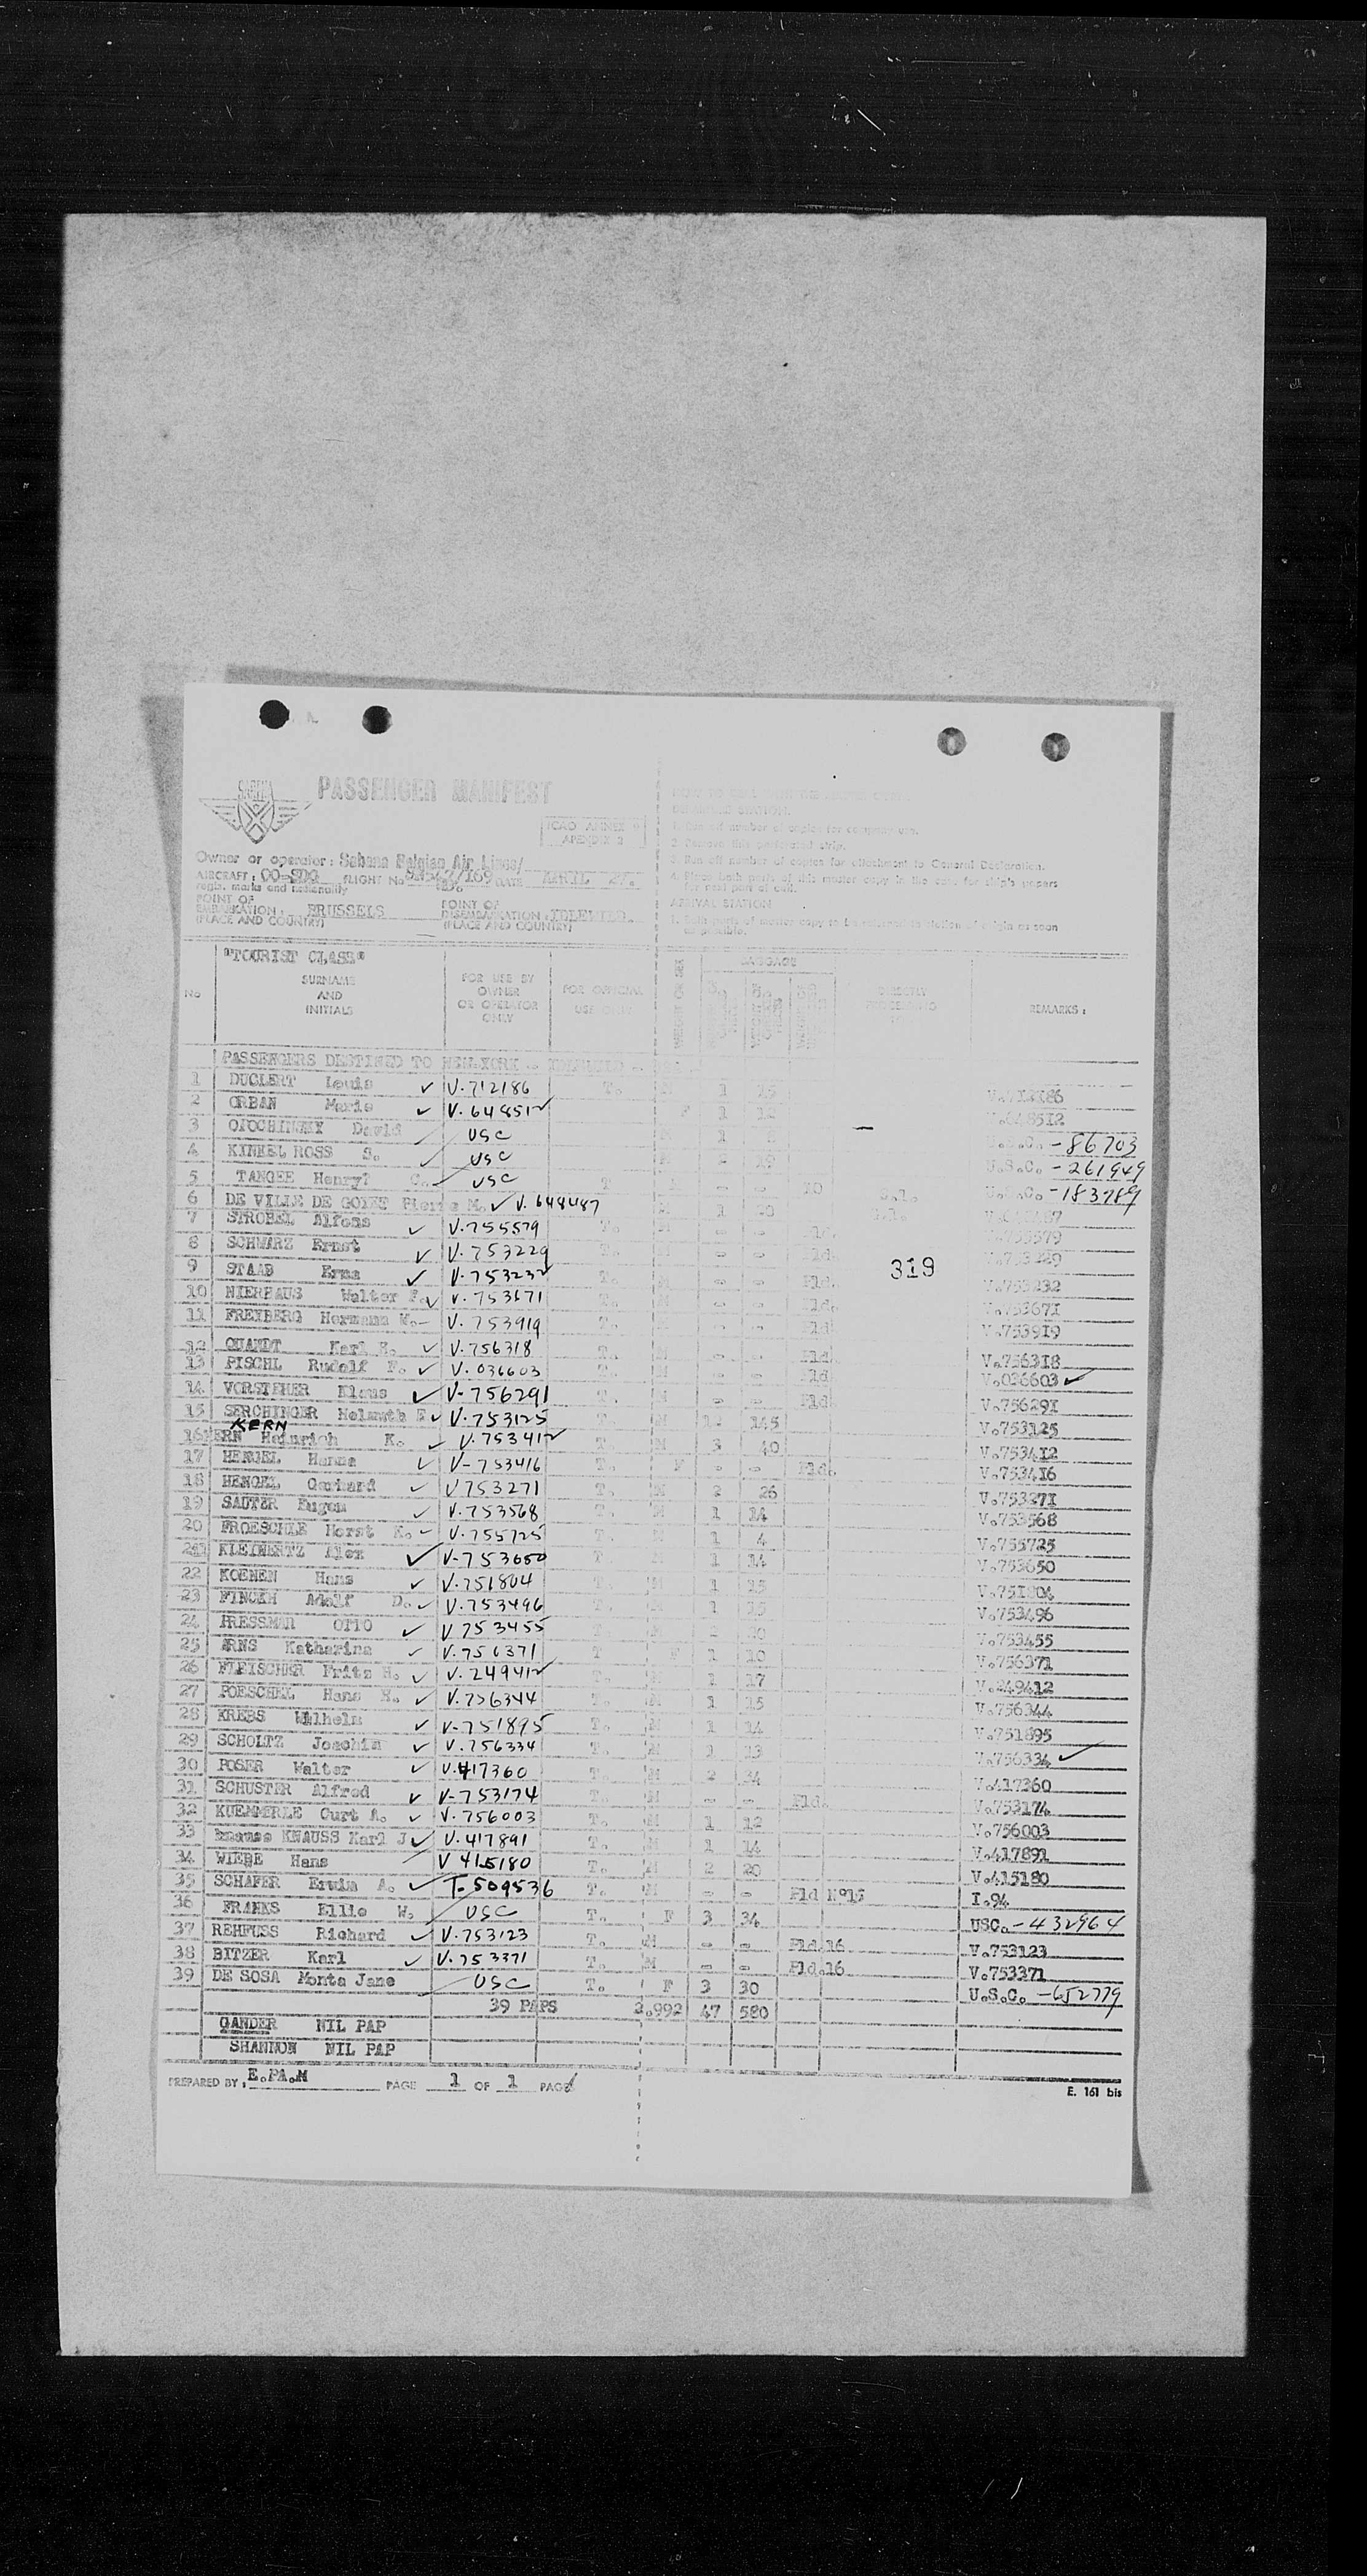 SABENA
PASSENGER MANIFEST
ICAO ANNEX 9
APENDIX 3
Owner or operator : Sabena Belgian Air Lines/
AIRCRAFT : OO-SDQ FLIGHT No /169 DATE APRIL 27.
regis. marks and nationality
POINT OF EMBARKATION : BRUSSELS POINT OF DISEMBARKATION : IDLEWILD.
(PLACE AND COUNTRY) (PLACE AND COUNTRY)
1. Run off number of copies for company use.
2. Remove this perforated strip.
3. Run off number of copies for attachment to General Declaration.
4. Place both parts of this master copy in the case for ship's papers
for next port of call.
ARRIVAL STATION
1. Both parts of master copy to be returned to station of origin as soon
as possible.
"TOURIST CLASS"
No SURNAME AND INITIALS FOR USE BY OWNER OR OPERATOR ONLY FOR OFFICIAL USE ONLY BAGGAGE REMARKS :
PASSENGERS DESTINED TO NEW-YORK - IDLEWILD -
1 DUCLERT Louis ✓ V.712186 T. M 1 V.712186
2 ORBAN Marie ✓ V.648512 F 1 12 V.648512
3 David USC M 1 U.S.C. - 86703
4 KINKEL ROSS S. USC M 2 19 U.S.C. - 261949
5 TANGEE Henry? C. USC T M - - 10 U.S.C. - 183789
6 DE VILLE DE GOYET Pierre M. ✓ V. 648487 M 1
7 STROBEL Alfons ✓ V.755579 T. - - Fld. V.755579
8 SCHWARZ Ernst ✓ V.753229 T. - - Fld.
319
9 STAAB Erna ✓ V.753232 T. - - Fld. V.753232
10 NIERHAUS Walter F. ✓ V.753671 T. - - Fld. V.753671
11 FREYBERG Hermann W. - V.753919 T. - - Fld V.753919
12 QUANDT Karl H. ✓ V.756318 T. M - - Fld V.756318
13 PISCHL Rudolf F. ✓ V.036603 T. M - - Fld V.036603 ✓
14 VORSTEHER Klaus ✓ V-756291 T. M - - Fld. V.756291
15 SERCHINGER Helmuth E ✓ V.753125 T. M 145 V.753125
KERN
16 KERN Heinrich K. ✓ V.753412 T. M 3 40 V.753412
17 HENGEL Hanna ✓ V-753416 T. F - - Fld. V.753416
18 HENGEL Gerhard ✓ V753271 T. M 2 26 V.753271
19 SAUTER Eugen ✓ V.753568 T. M 1 14 V.753568
20 FROESCHLE Horst K. - V.755725 T. M 1 4 V.755725
21 KLEINERTZ Alex ✓ V-753650 T M 1 14 V.753650
22 KOENEN Hans ✓ V.751804 T M 1 15 V.751804
23 FINCKH Adolf D. ✓ V.753496 T. M 1 15 V.753496
24 PRESSMAR OTTO ✓ V753455 T M 20 V.753455
25 ARNS Katharina ✓ V.756371 T F 1 10 V.756371
26 FLEISCHER Fritz H. ✓ V.249412 T. M 1 17 V.249412
27 POESCHEL Hans H. ✓ V.756344 T. M 1 15 V.756344
28 KREBS Wilhelm ✓ V-751895 T. M 1 14 V.751895
29 SCHOLTZ Joachim ✓ V.756334 T. M 1 13 V.756334 ✓
30 POSER Walter ✓ V.417360 T. M 2 34 V.417360
31 SCHUSTER Alfred ✓ V-753174 T. M - - Fld. V.753174
32 KUEMMERLE Curt A. ✓ V.756003 T. M 1 12 V.756003
33 knauss KNAUSS Karl J ✓ V.417891 T. M 1 14 V.417891
34 WIEBE Hans V 415180 T. M 2 20 V.415180
35 SCHAFER Erwin A. ✓ T.509536 T. M - - Fld N°15 I.94
36 FRANKS Ellie W. USC T. F 3 34 USC. - 432964
37 REHFUSS Richard ✓ V.753123 T. M - - Fld.16 V.753123
38 BITZER Karl ✓ V.753371 T. M - - Fld.16 V.753371
39 DE SOSA Monta Jane USC T. F 3 30 U.S.C. - 652779
39 PAPS 2.992 47 580
GANDER NIL PAP
SHANNON NIL PAP
PREPARED BY : E.PA.M PAGE 1 OF 1 PAGE
E. 161 bis